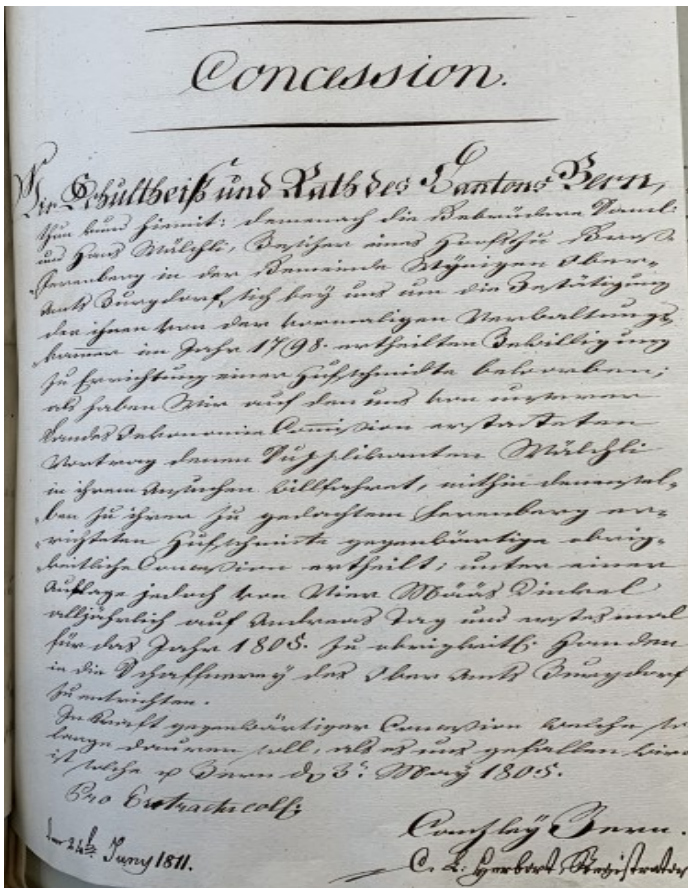 Concession.
Wir Schultheiß und Rath des Cantons Bern,
thun kund hiemit: demenach die Gebrüdere Saml:
und Hans Wälchli, Besitzer eines
Ferenberg in der Gemeinde Wynigen Ober-
Amts Burgdorf, sich bey uns um die Bestätigung
der ihnen von der vormaligen Verwaltungs-
kammer im Jahr 1798. ertheilten Bewilligung
zu Errichtung einer Hufschmidte beworben;
als haben Wir auf den uns von unserer
Landes Oekonomie Commission erstatteten
Vortrag denen Supplikanten Wälchli
in ihrem Ansuchen willfahret, mithin denensel-
ben zu ihrer zu gedachtem Ferenberg er-
richteten Hufschmidte gegenwärtige obrig-
keitliche Concession ertheilt; unter einer
Auflage jedoch von Vier Määs Dinkel
alljährlich auf Andreas Tag und erstes mal
für das Jahr 1805. zu obrigkeitl: Handen
in die Schaffnerey des Ober Amts Burgdorf
zu entrichten.
In Kraft gegenwärtiger Concession welche so
lange dauren soll, als es uns gefallen wird
ist solche Bern d. 3t. May 1805.
Pro Extractu
den 24t. Juny 1811.
Canzley Bern.
Herbort, Registrator